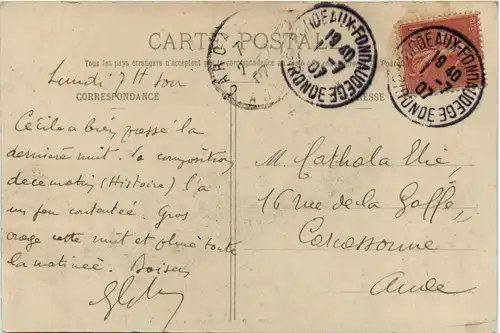 CARTE POSTALE
Tous les pays étrangers n'acceptent pas la correspondance au
CORRESPONDANCE
ADRESSE
BORDEAUX-FONDAUDEGE GIRONDE
19 40
1-7
07
BORDEAUX-FONDAUDEGE GIRONDE
19 40
1-7
07
Lundi 7H soir
Cécile a bien passé la
dernière nuit. la composition
de ce matin (Histoire) l'a
un peu contentée. Gros
orage cette nuit et pluie toute
la matinée. Baisers
M. Cathala Elie,
16 rue de la Gaffe,
Carcassonne
Aude